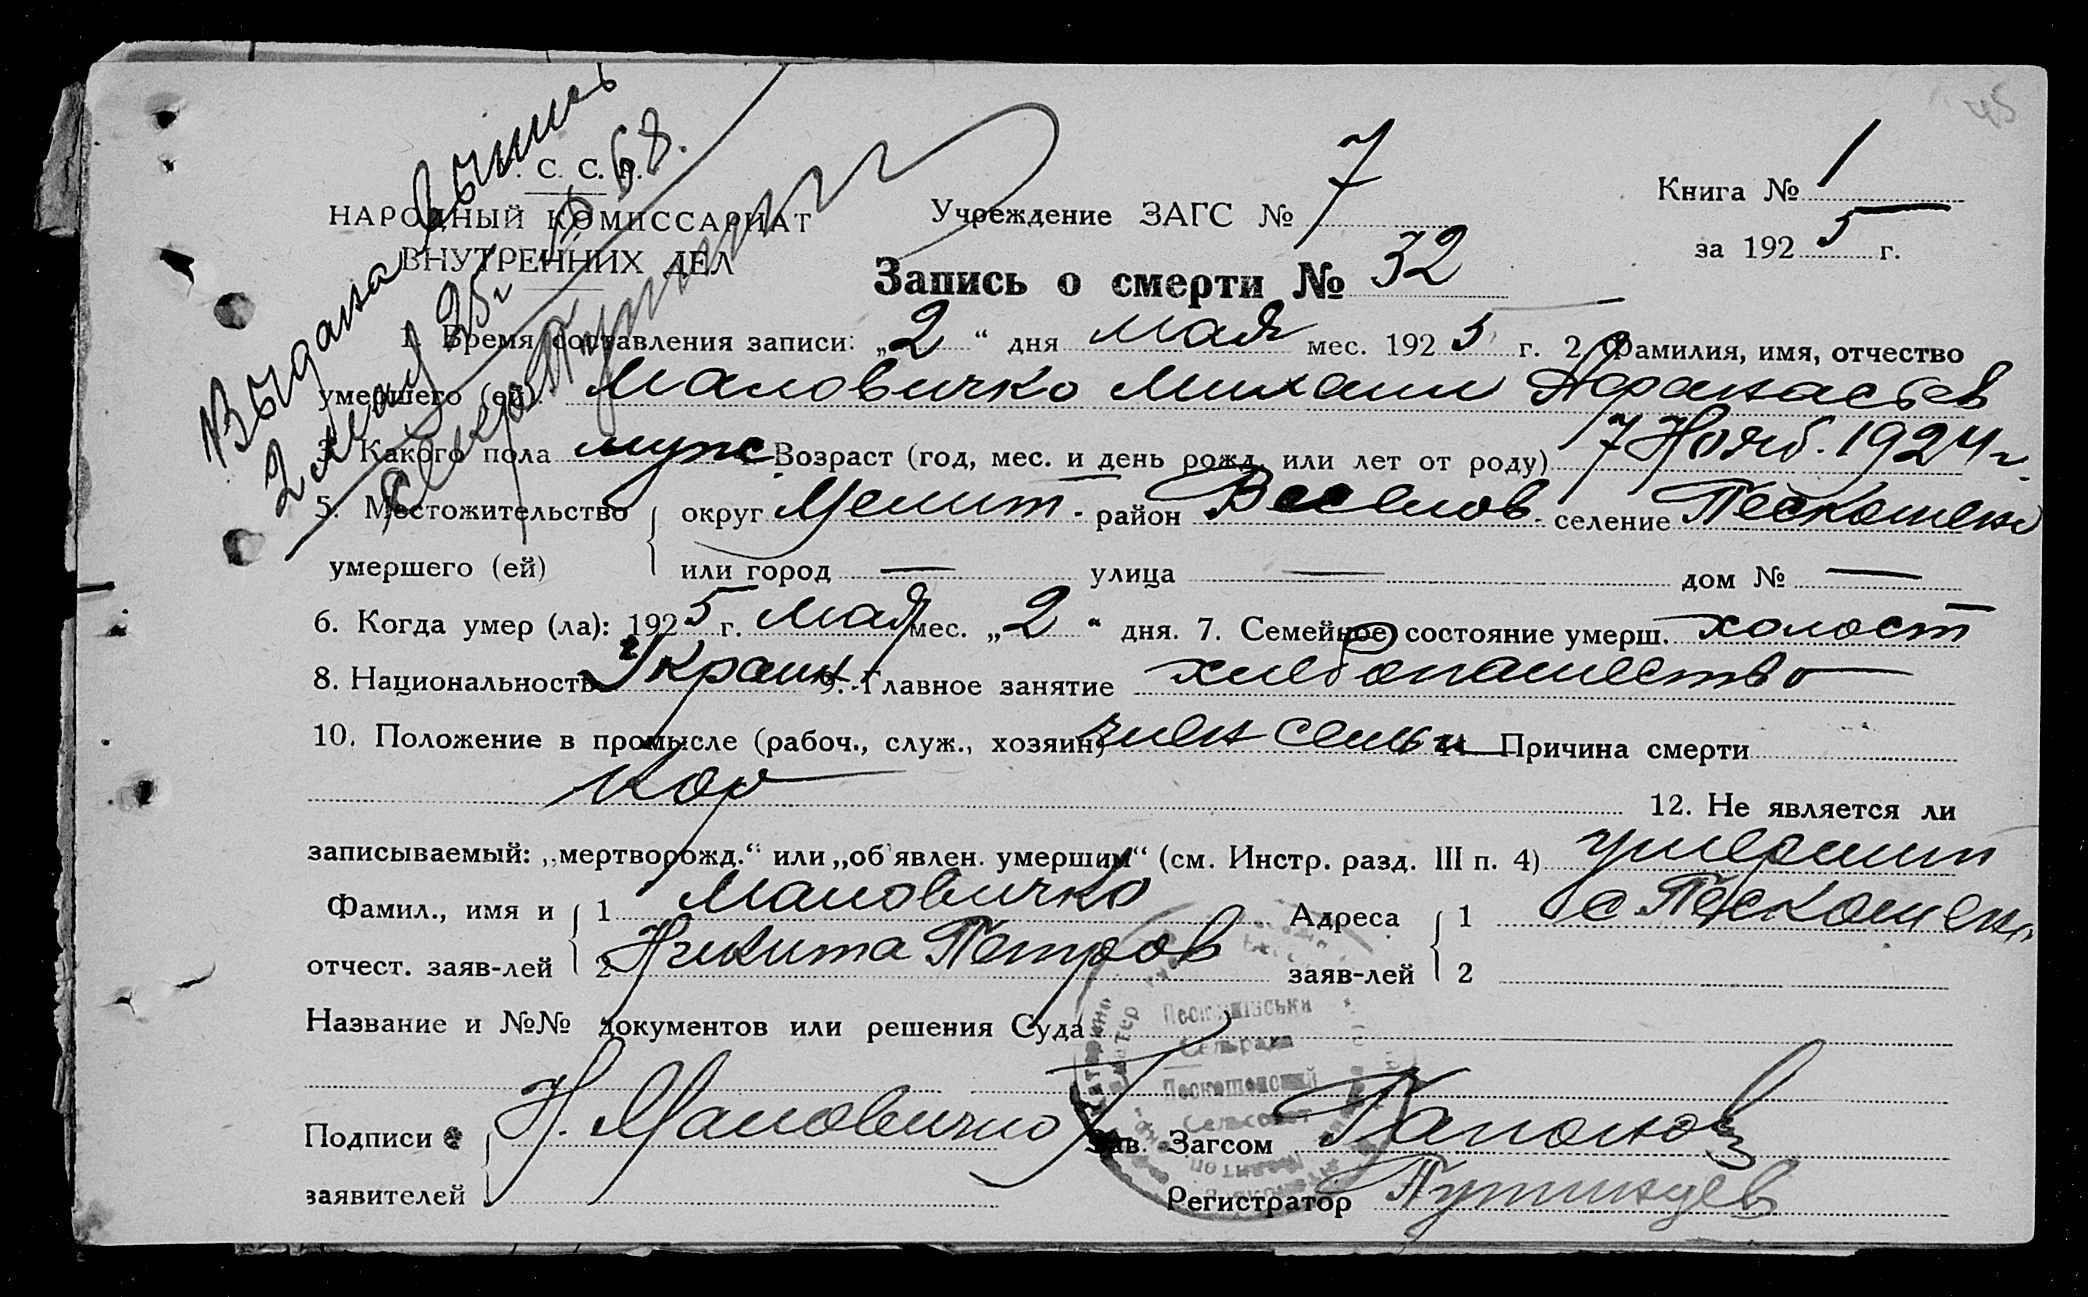 45
Выдана выпись
2 мая 25 г № 68.
Секрет Путинцев
С. С. Р.
НАРОДНЫЙ КОМИССАРИАТ
ВНУТРЕННИХ ДЕЛ
Учреждение ЗАГС № 7
Книга № 1
за 1925 г.
Запись о смерти № 32
1. Время составления записи: „2“ дня мая мес. 1925 г. 2. Фамилия, имя, отчество
умершего (ей) Маловичко Михаил Афанасьев
3. Какого пола муж 4. Возраст (год, мес. и день рожд. или лет от роду) 7 Нояб. 1924 г.
5. Местожительство округ Мелит. район Веселов. селение Пескошено
умершего (ей) или город — улица — дом № —
6. Когда умер (ла): 1925 г. мая мес. „2“ дня. 7. Семейное состояние умерш. холост
8. Национальность Украин. 9. Главное занятие хлебопашество
10. Положение в промысле (рабоч., служ., хозяин) член семьи 11. Причина смерти
кор
12. Не является ли
записываемый: „мертворожд.“ или „об'явлен. умершим“ (см. Инстр. разд. III п. 4) умершим
Фамил., имя и 1 Маловичко Адреса 1 с Пескошено
отчест. заяв-лей 2 Никита Петров заяв-лей 2
Название и №№ документов или решения Суда
Сельрада
Пескошенский
Сельсовет
Подписи Н. Маловичко Зав. Загсом Гапонов
заявителей Регистратор Путинцев